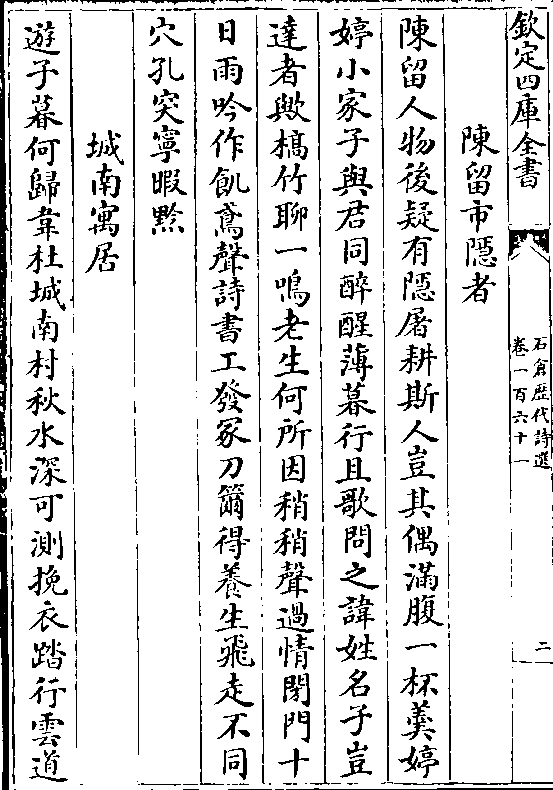 欽定四庫全書
石倉歴代詩選
卷一百六十一
二
陳留市隱者
陳留人物後疑有隱屠耕斯人豈其偶滿腹一杯羮婷
婷小家子與君同醉醒薄暮行且歌問之諱姓名子豈
達者歟槁竹聊一鳴老生何所因稍稍聲過情閉門十
日雨吟作飢鳶聲詩書工發冢刀鑷得養生飛走不同
穴孔突寧暇黔
城南寓居
遊子暮何歸韋杜城南村秋水深可測挽衣踏行雲道